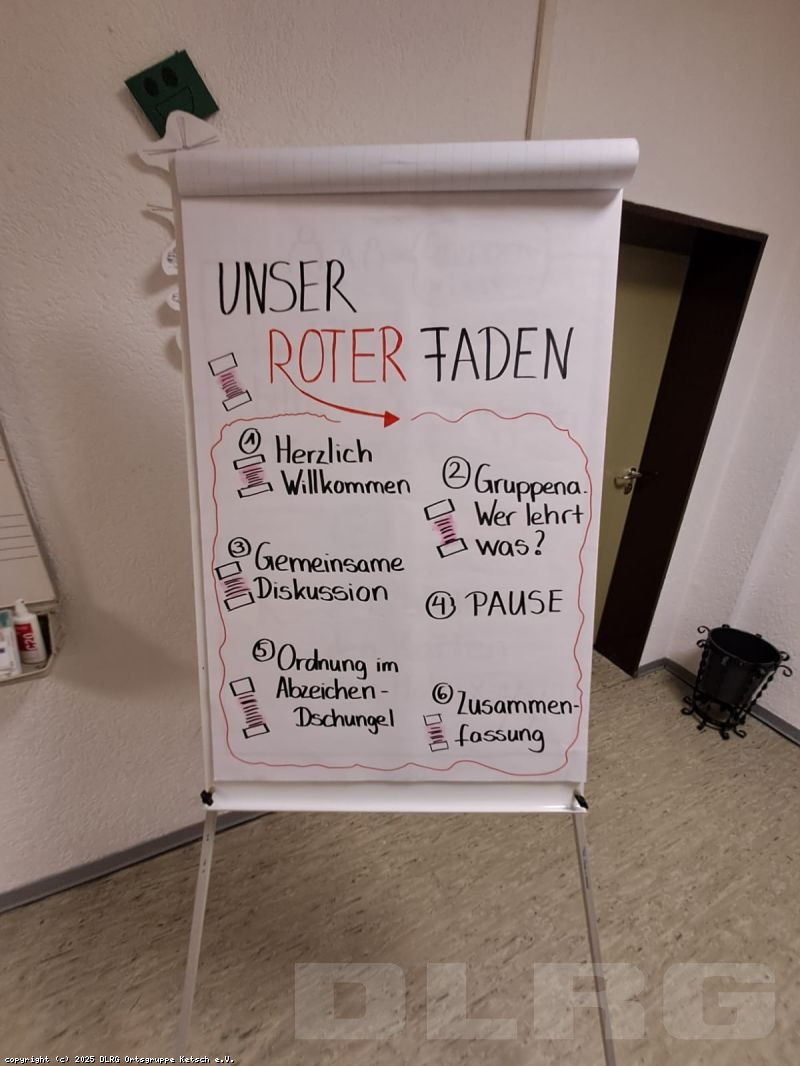 UNSER
ROTER FADEN
① Herzlich
Willkommen
② Gruppena.
Wer lehrt
was?
③ Gemeinsame
Diskussion
④ PAUSE
⑤ Ordnung im
Abzeichen-
Dschungel
⑥ Zusammen-
fassung
DLRG
copyright (c) 2025 DLRG Ortsgruppe Ketsch e.V.